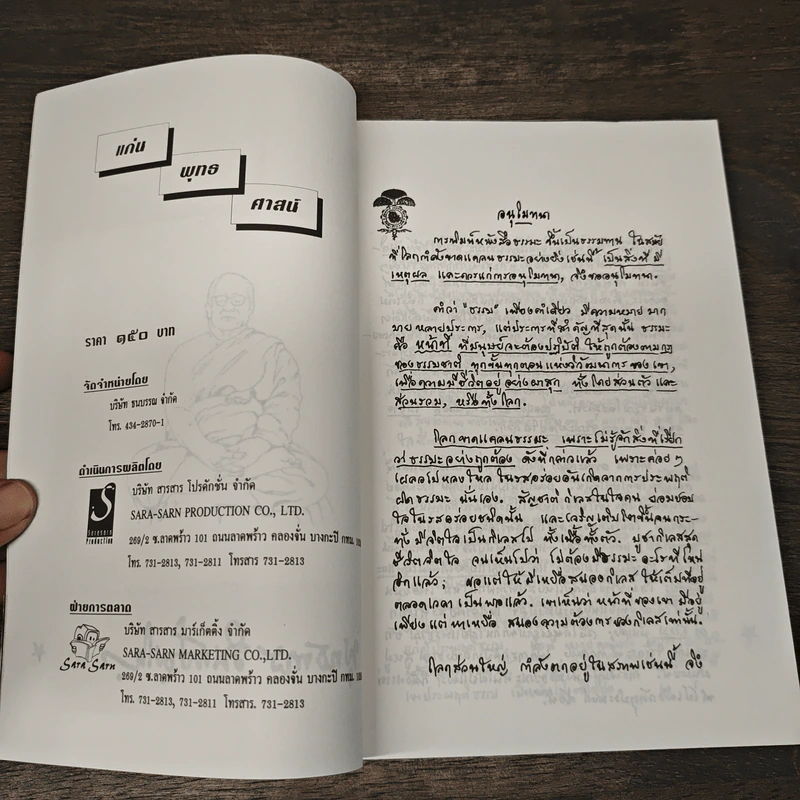 แก่น
พุทธ
ศาสน์
ราคา ๑๕๐ บาท
จัดจำหน่ายโดย
บริษัท ธนบรรณ จำกัด
โทร. 434-2870-1
ดำเนินการผลิตโดย
บริษัท สารสาร โปรดักชั่น จำกัด
SARA-SARN PRODUCTION CO., LTD.
269/2 ซ.ลาดพร้าว 101 ถนนลาดพร้าว คลองจั่น บางกะปี กทม.
โทร. 731-2813, 731-2811 โทรสาร 731-2813
Sarasarn
Production
ฝ่ายการตลาด
บริษัท สารสาร มาร์เก็ตติ้ง จำกัด
SARA-SARN MARKETING CO.,LTD.
269/2 ซ.ลาดพร้าว 101 ถนนลาดพร้าว คลองจั่น บางกะปี กทม.
โทร. 731-2813, 731-2811 โทรสาร. 731-2813
SARA SARN
อนุโมทนา
การพิมพ์หนังสือธรรมะ ขึ้นเป็นธรรมทาน ในสมัย
ที่โลกกำลังขาดแคลนธรรมะอย่างยิ่งเช่นนี้ เป็นสิ่งที่ มี
เหตุผล และควรแก่การอนุโมทนา, จึงขออนุโมทนา.
คำว่า "ธรรม" เพียงคำเดียว มีความหมาย มาก
มาย หลายประการ, แต่ประการที่สำคัญที่สุดนั้น ธรรมะ
คือ หน้าที่ ที่มนุษย์จะต้องปฏิบัติ ให้ถูกต้องตามกฎ
ของธรรมชาติ ทุกขั้นทุกตอน แห่งวิวัฒนาการ ของเขา,
เพื่อความมีชีวิตอยู่ อย่างผาสุก ทั้งโดยส่วนตัว และ
ส่วนรวม, หรือทั้งโลก.
โลกขาดแคลนธรรมะ เพราะไม่รู้จักสิ่งที่เรียก
ว่า ธรรมะอย่างถูกต้อง ดังที่กล่าวแล้ว เพราะค่อย ๆ
เผลอไปหลงใหล ในรสอร่อยอันเกิดจากการประพฤติ
ผิดธรรมะ นั่นเอง. สัญชาติ กิเลสในใจคน ย่อมชอบ
ใจในรสอร่อยชนิดนั้น และเจริญเติบโตขึ้นจนกระ-
ทั่ง มีจิตใจเป็นกิเลสไป ทั้งเนื้อทั้งตัว. บูชากิเลสสุด
ชีวิตจิตใจ จนเห็นไปว่า ไม่ต้องมีธรรมะ อะไรที่ไหน
อีกแล้ว; ขอแต่ให้ มีเหยื่อสนองกิเลส ให้เต็มที่อยู่
ตลอดเวลา เป็นพอแล้ว. เขาเห็นว่า หน้าที่ ของเขา มีอยู่
เพียง แต่ หาเหยื่อ สนองความต้องการ ของกิเลสเท่านั้น.
โลกส่วนใหญ่ กำลังตกอยู่ในสภาพเช่นนี้ จึง